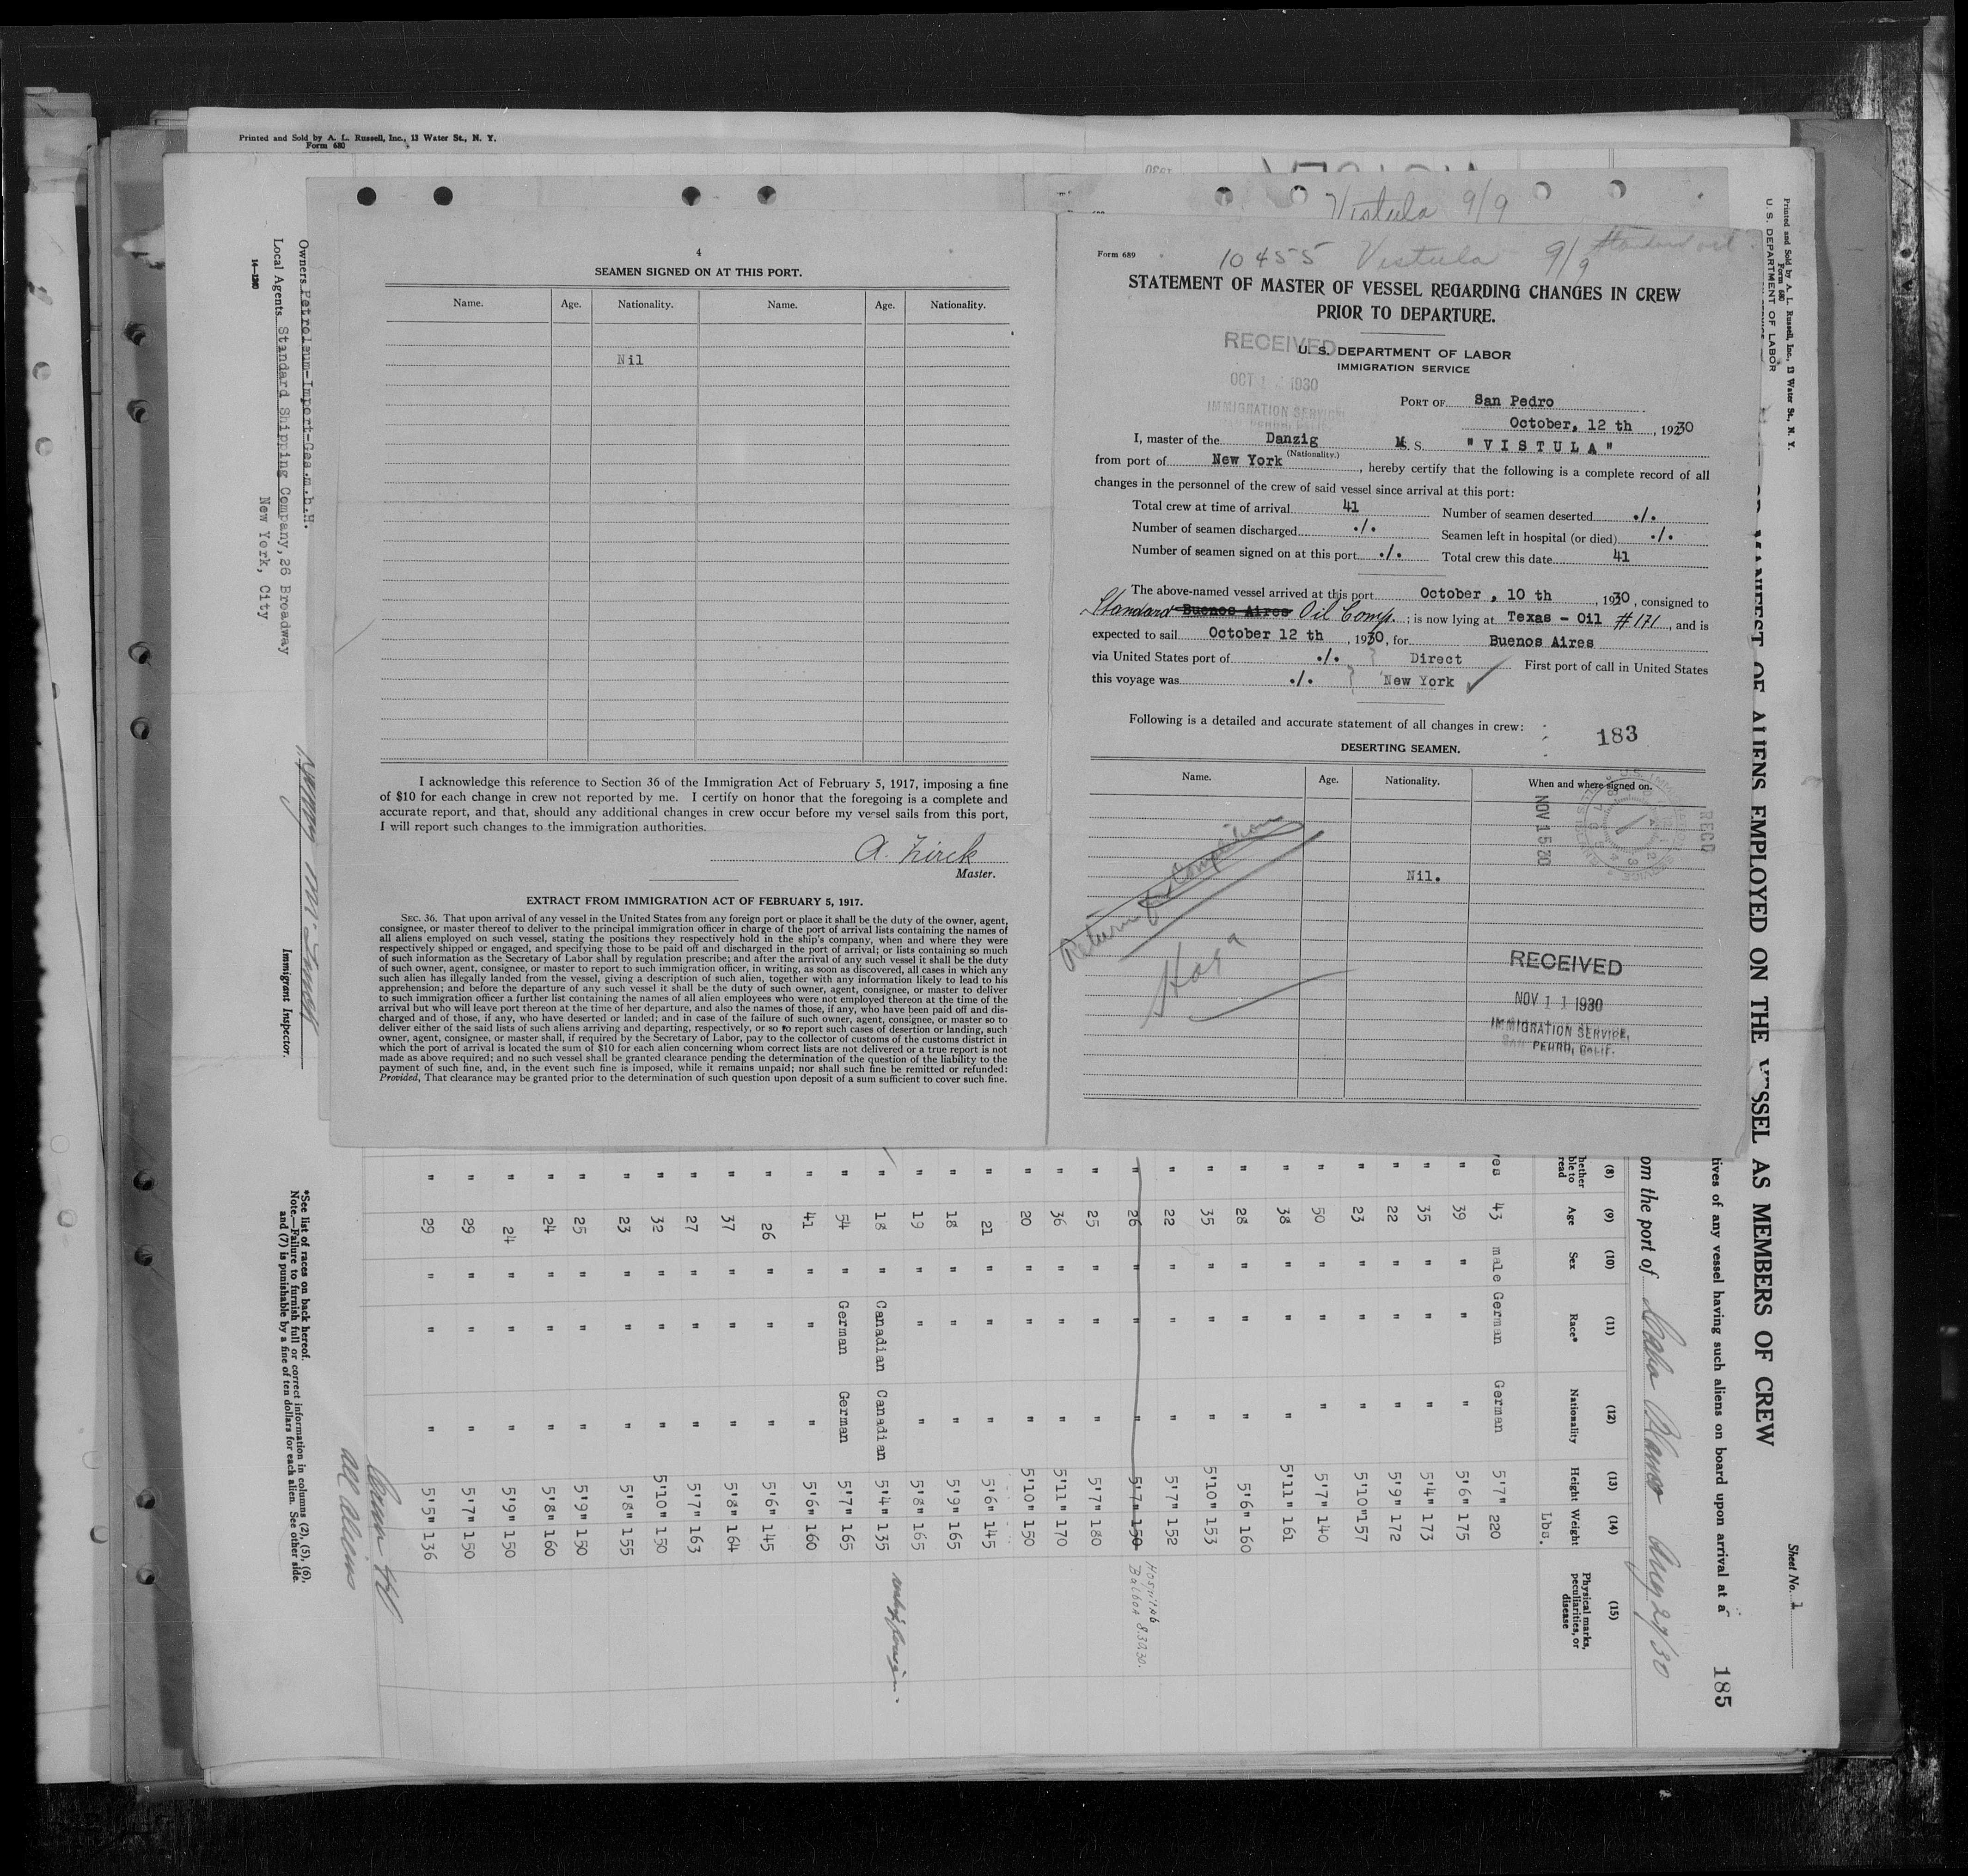 Printed and Sold by A. L. Russell, Inc., 13 Water St., N. Y.
Form 680
Vistula 9/9
4
SEAMEN SIGNED ON AT THIS PORT.
Name. Age. Nationality. Name. Age. Nationality.
Nil
I acknowledge this reference to Section 36 of the Immigration Act of February 5, 1917, imposing a fine
of $10 for each change in crew not reported by me. I certify on honor that the foregoing is a complete and
accurate report, and that, should any additional changes in crew occur before my vessel sails from this port,
I will report such changes to the immigration authorities.
A. Zirck
Master.
EXTRACT FROM IMMIGRATION ACT OF FEBRUARY 5, 1917.
SEC. 36. That upon arrival of any vessel in the United States from any foreign port or place it shall be the duty of the owner, agent,
consignee, or master thereof to deliver to the principal immigration officer in charge of the port of arrival lists containing the names of
all aliens employed on such vessel, stating the positions they respectively hold in the ship's company, when and where they were
respectively shipped or engaged, and specifying those to be paid off and discharged in the port of arrival; or lists containing so much
of such information as the Secretary of Labor shall by regulation prescribe; and after the arrival of any such vessel it shall be the duty
of such owner, agent, consignee, or master to report to such immigration officer, in writing, as soon as discovered, all cases in which any
such alien has illegally landed from the vessel, giving a description of such alien, together with any information likely to lead to his
apprehension; and before the departure of any such vessel it shall be the duty of such owner, agent, consignee, or master to deliver
to such immigration officer a further list containing the names of all alien employees who were not employed thereon at the time of the
arrival but who will leave port thereon at the time of her departure, and also the names of those, if any, who have been paid off and dis-
charged and of those, if any, who have deserted or landed; and in case of the failure of such owner, agent, consignee, or master so to
deliver either of the said lists of such aliens arriving and departing, respectively, or so to report such cases of desertion or landing, such
owner, agent, consignee, or master shall, if required by the Secretary of Labor, pay to the collector of customs of the customs district in
which the port of arrival is located the sum of $10 for each alien concerning whom correct lists are not delivered or a true report is not
made as above required; and no such vessel shall be granted clearance pending the determination of the question of the liability to the
payment of such fine, and, in the event such fine is imposed, while it remains unpaid; nor shall such fine be remitted or refunded:
Provided, That clearance may be granted prior to the determination of such question upon deposit of a sum sufficient to cover such fine.
Form 689
10455 Vistula 9/9 Standard oil
STATEMENT OF MASTER OF VESSEL REGARDING CHANGES IN CREW
PRIOR TO DEPARTURE.
RECEIVED
U. S. DEPARTMENT OF LABOR
IMMIGRATION SERVICE
OCT 1 1930
IMMIGRATION SERVICE
PORT OF San Pedro
October, 12 th, 1930
I, master of the Danzig M. S. "VISTULA"
(Nationality.)
from port of New York, hereby certify that the following is a complete record of all
changes in the personnel of the crew of said vessel since arrival at this port:
Total crew at time of arrival 41 Number of seamen deserted ./.
Number of seamen discharged ./. Seamen left in hospital (or died) ./.
Number of seamen signed on at this port ./. Total crew this date 41
The above-named vessel arrived at this port October, 10 th, 1930, consigned to
Standard Buenos Aires Oil Comp. ; is now lying at Texas - Oil #171, and is
expected to sail October 12 th, 1930, for Buenos Aires
via United States port of ./. Direct First port of call in United States
this voyage was ./. New York
Following is a detailed and accurate statement of all changes in crew:
183
DESERTING SEAMEN.
Name. Age. Nationality. When and where signed on.
NOV 15 30
REC'D
Nil.
Return for Completion
RECEIVED
NOV 11 1930
IMMIGRATION SERVICE,
SAN PEDRO, CALIF.
Printed and Sold by A. L. Russell, Inc., 13 Water St., N. Y.
Form 680
U. S. DEPARTMENT OF LABOR
Sheet No. 1
MANIFEST OF ALIENS EMPLOYED ON THE VESSEL AS MEMBERS OF CREW
185
tives of any vessel having such aliens on board upon arrival at a
om the port of Aug 27/30
(8) (9) (10) (11) (12) (13) (14) (15)
hether ble to read Age Sex Race* Nationality Height Weight Physical marks, peculiarities, or disease
Lbs.
yes 43 male German German 5'7" 220
" 39 " " " 5'6" 175
" 35 " " " 5'4" 173
" 22 " " " 5'9" 172
" 23 " " " 5'10" 157
" 50 " " " 5'7" 140
" 38 " " " 5'11" 161
" 28 " " " 5'6" 160
" 35 " " " 5'10" 153
" 22 " " " 5'7" 152
" 26 " " " 5'7" 150 Hospital Balboa 8.30.30.
" 25 " " " 5'7" 180
" 36 " " " 5'11" 170
" 20 " " " 5'10" 150
" 21 " " " 5'6" 145
" 18 " " " 5'9" 165
" 19 " " " 5'8" 165
" 18 " Canadian Canadian 5'4" 135
" 54 " German German 5'7" 165
" 41 " " " 5'6" 160
" 26 " " " 5'6" 145
" 37 " " " 5'8" 164
" 27 " " " 5'7" 163
" 32 " " " 5'10" 150
" 23 " " " 5'8" 155
" 25 " " " 5'9" 150
" 24 " " " 5'8" 160
" 24 " " " 5'9" 150
" 29 " " " 5'7" 150
" 29 " " " 5'5" 136
all aliens
Owners Petroleum-Import-Ges.m.b.H.
Local Agents Standard Shipping Company, 26 Broadway
New York, City
Immigrant Inspector.
*See list of races on back hereof.
Note.—Failure to furnish full or correct information in columns (2), (5), (6),
and (7) is punishable by a fine of ten dollars for each alien. See other side.